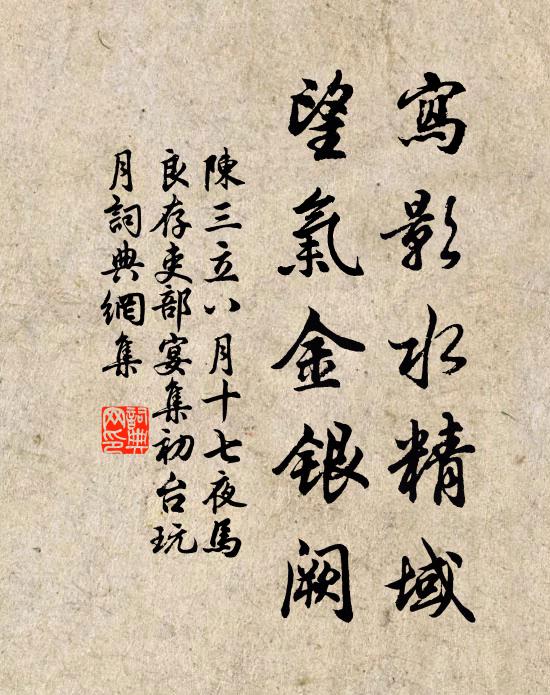 寫影水精域
望氣金銀闕
陳三立八月十七夜馬
良存吏部宴集初台玩
月詞典網集
詞典
网印